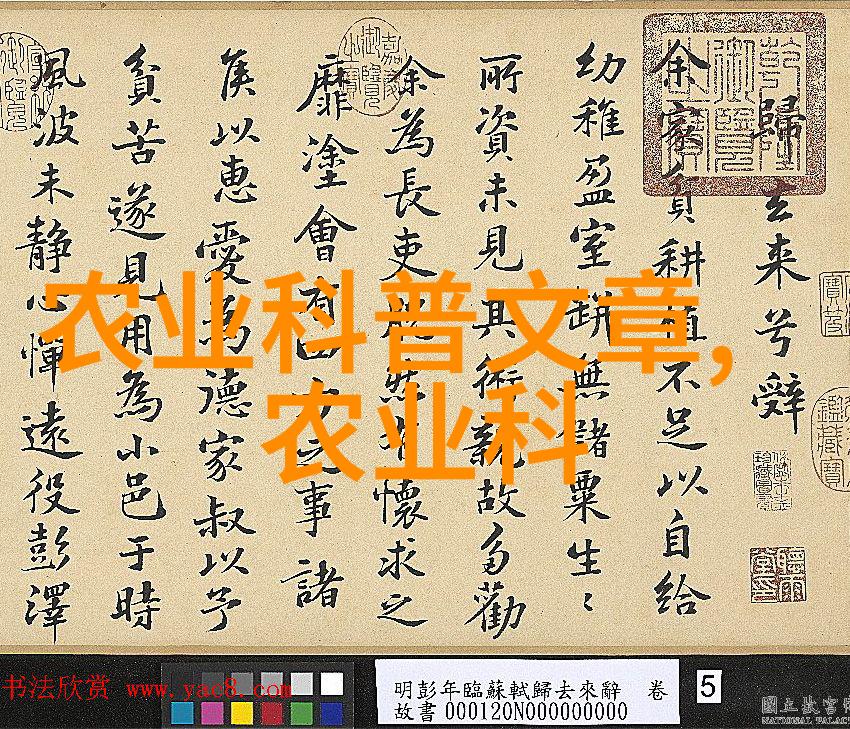 歸去来兮辤
余家貧耕植不足以自給
幼稚盈室缾無儲粟生〻
所資未見其術親故多勸
余為長吏脫然有懷求之
靡塗會有四方之事諸
侯以恵愛為德家叔以予
貧苦遂見用為小邑于時
風波未静心憚遠役彭澤
农业科普文章,
农业科
书法欣赏 www.yac8.com
明彭年臨蘇軾歸去來辭 卷 5
故書 000120N000000000
國立故宮博
NATIONAL PALACE